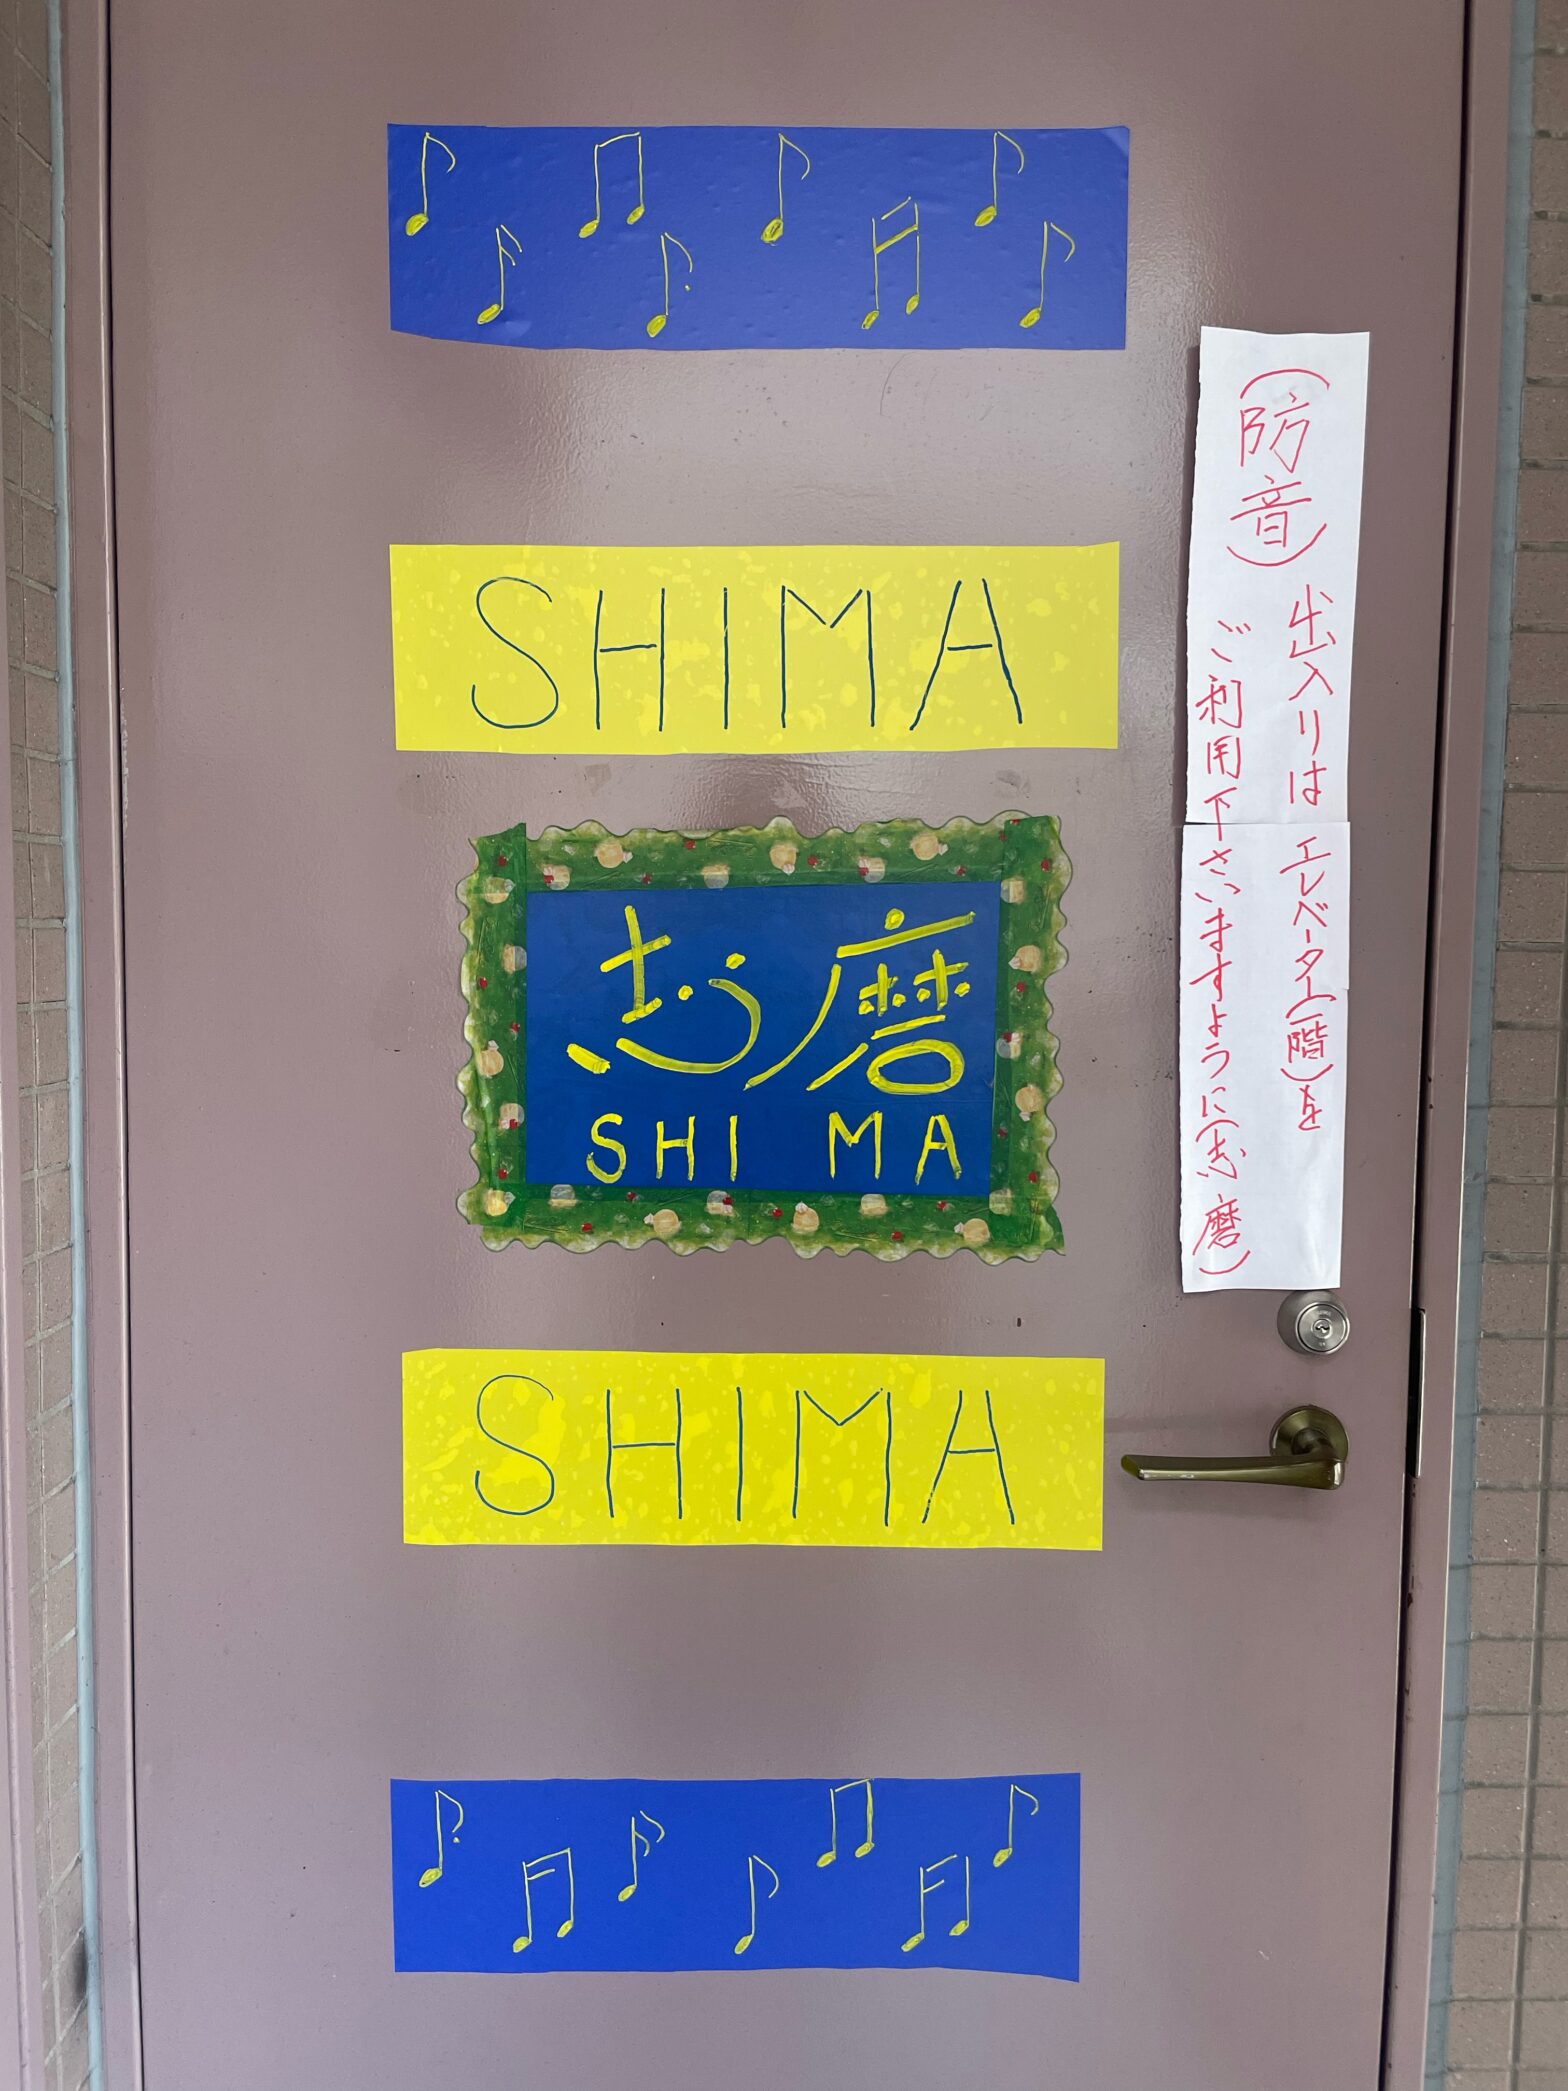 SHIMA
志磨
SHIMA
SHIMA
(防音)
出入りは エレベーター(一階)を
ご利用下さいますように(志磨)